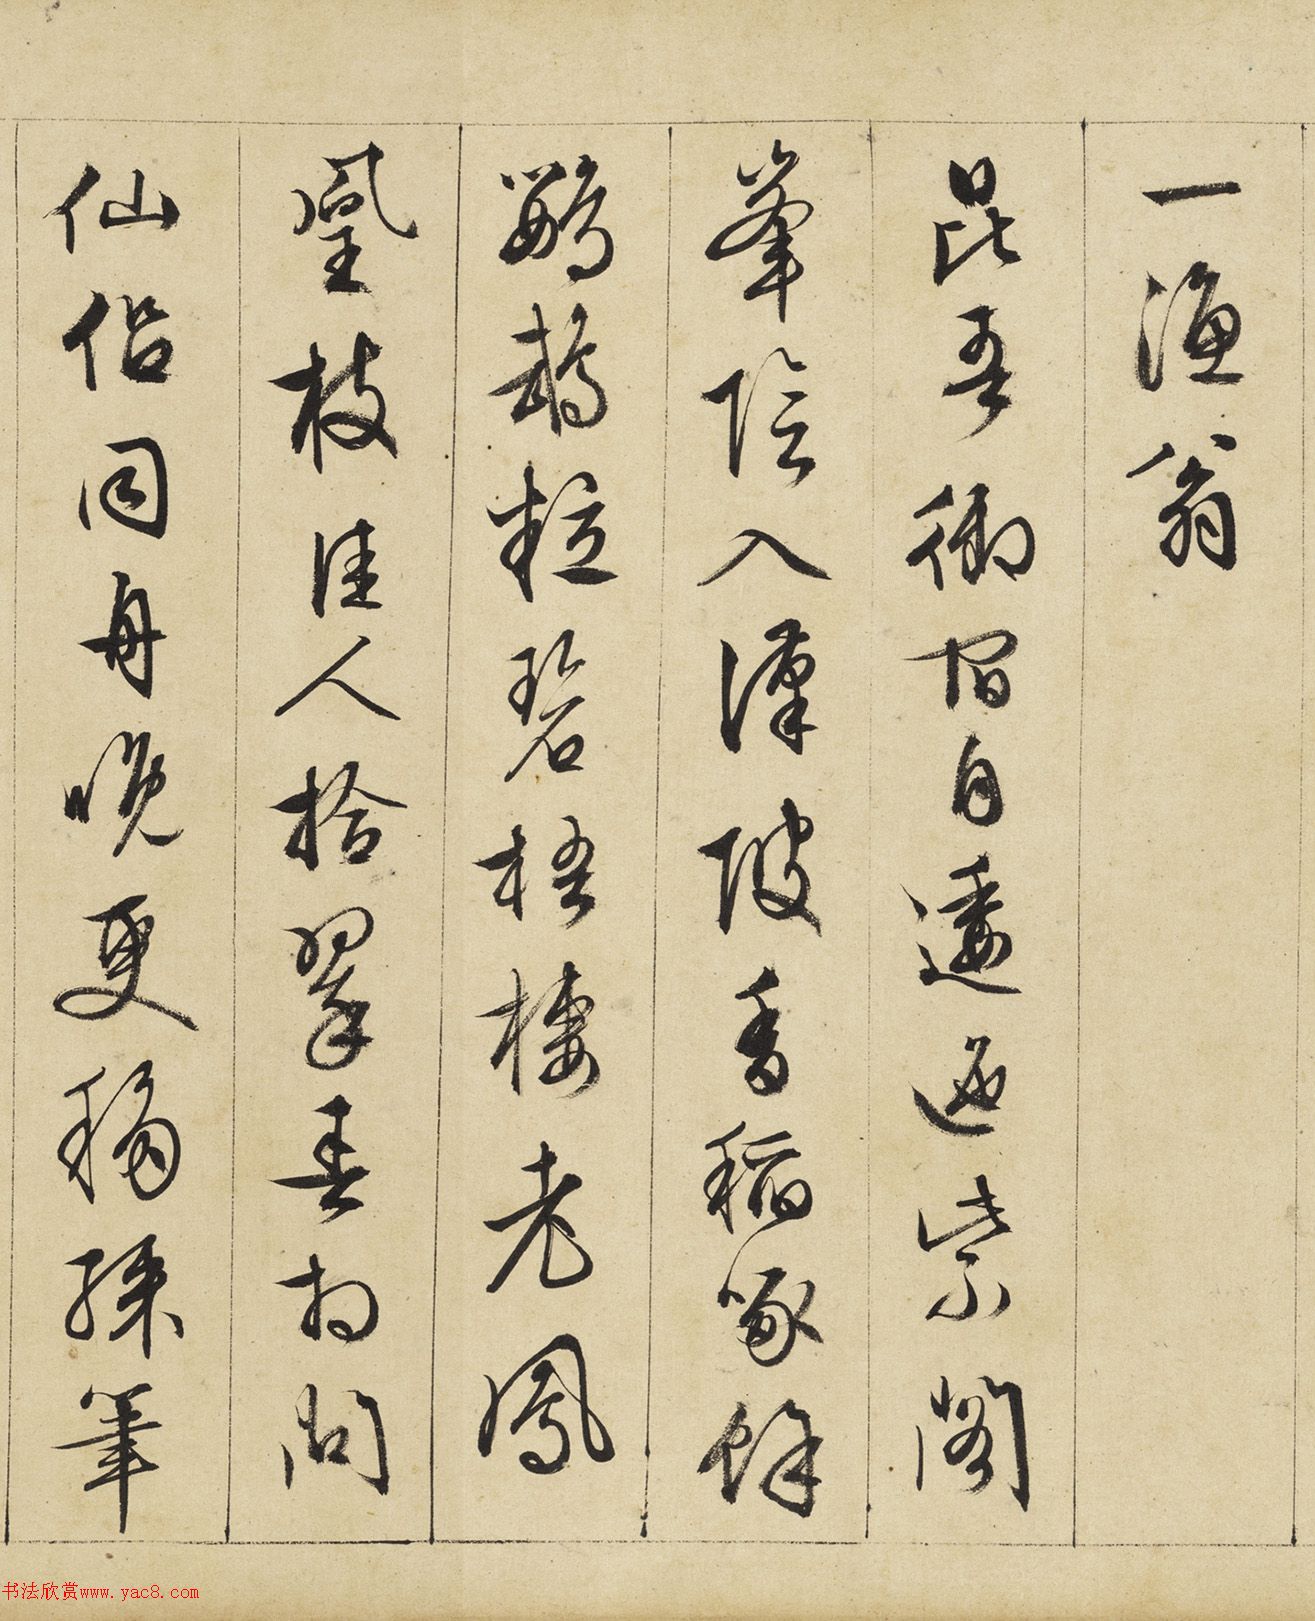 一漁翁
昆吾御宿自逶迤紫閣
峯陰入渼陂香稻啄餘
鸚鵡粒碧梧棲老鳳
凰枝佳人拾翠春相問
仙侶同舟晚更移綵筆
书法欣赏www.yac8.com